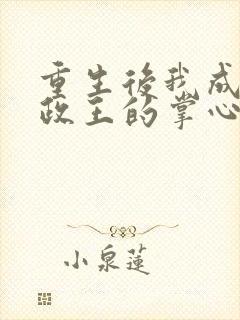 重生後我成
政王的掌心
小泉蓮